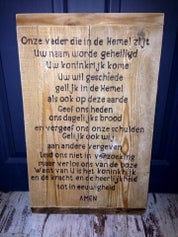 Onze vader die in de Hemel zijt
Uw naam worde geheiligd
Uw koninkrijk kome
Uw wil geschiede
gelijk in de Hemel
als ook op deze aarde
Geef ons heden
ons dagelijks brood
en vergeef ons onze schulden
Gelijk ook wij
aan andere vergeven
Leid ons niet in verzoeking
maar verlos ons van de boze
Want van U is het koninkrijk
en de kracht en de heerlijkheid
tot in eeuwigheid
AMEN